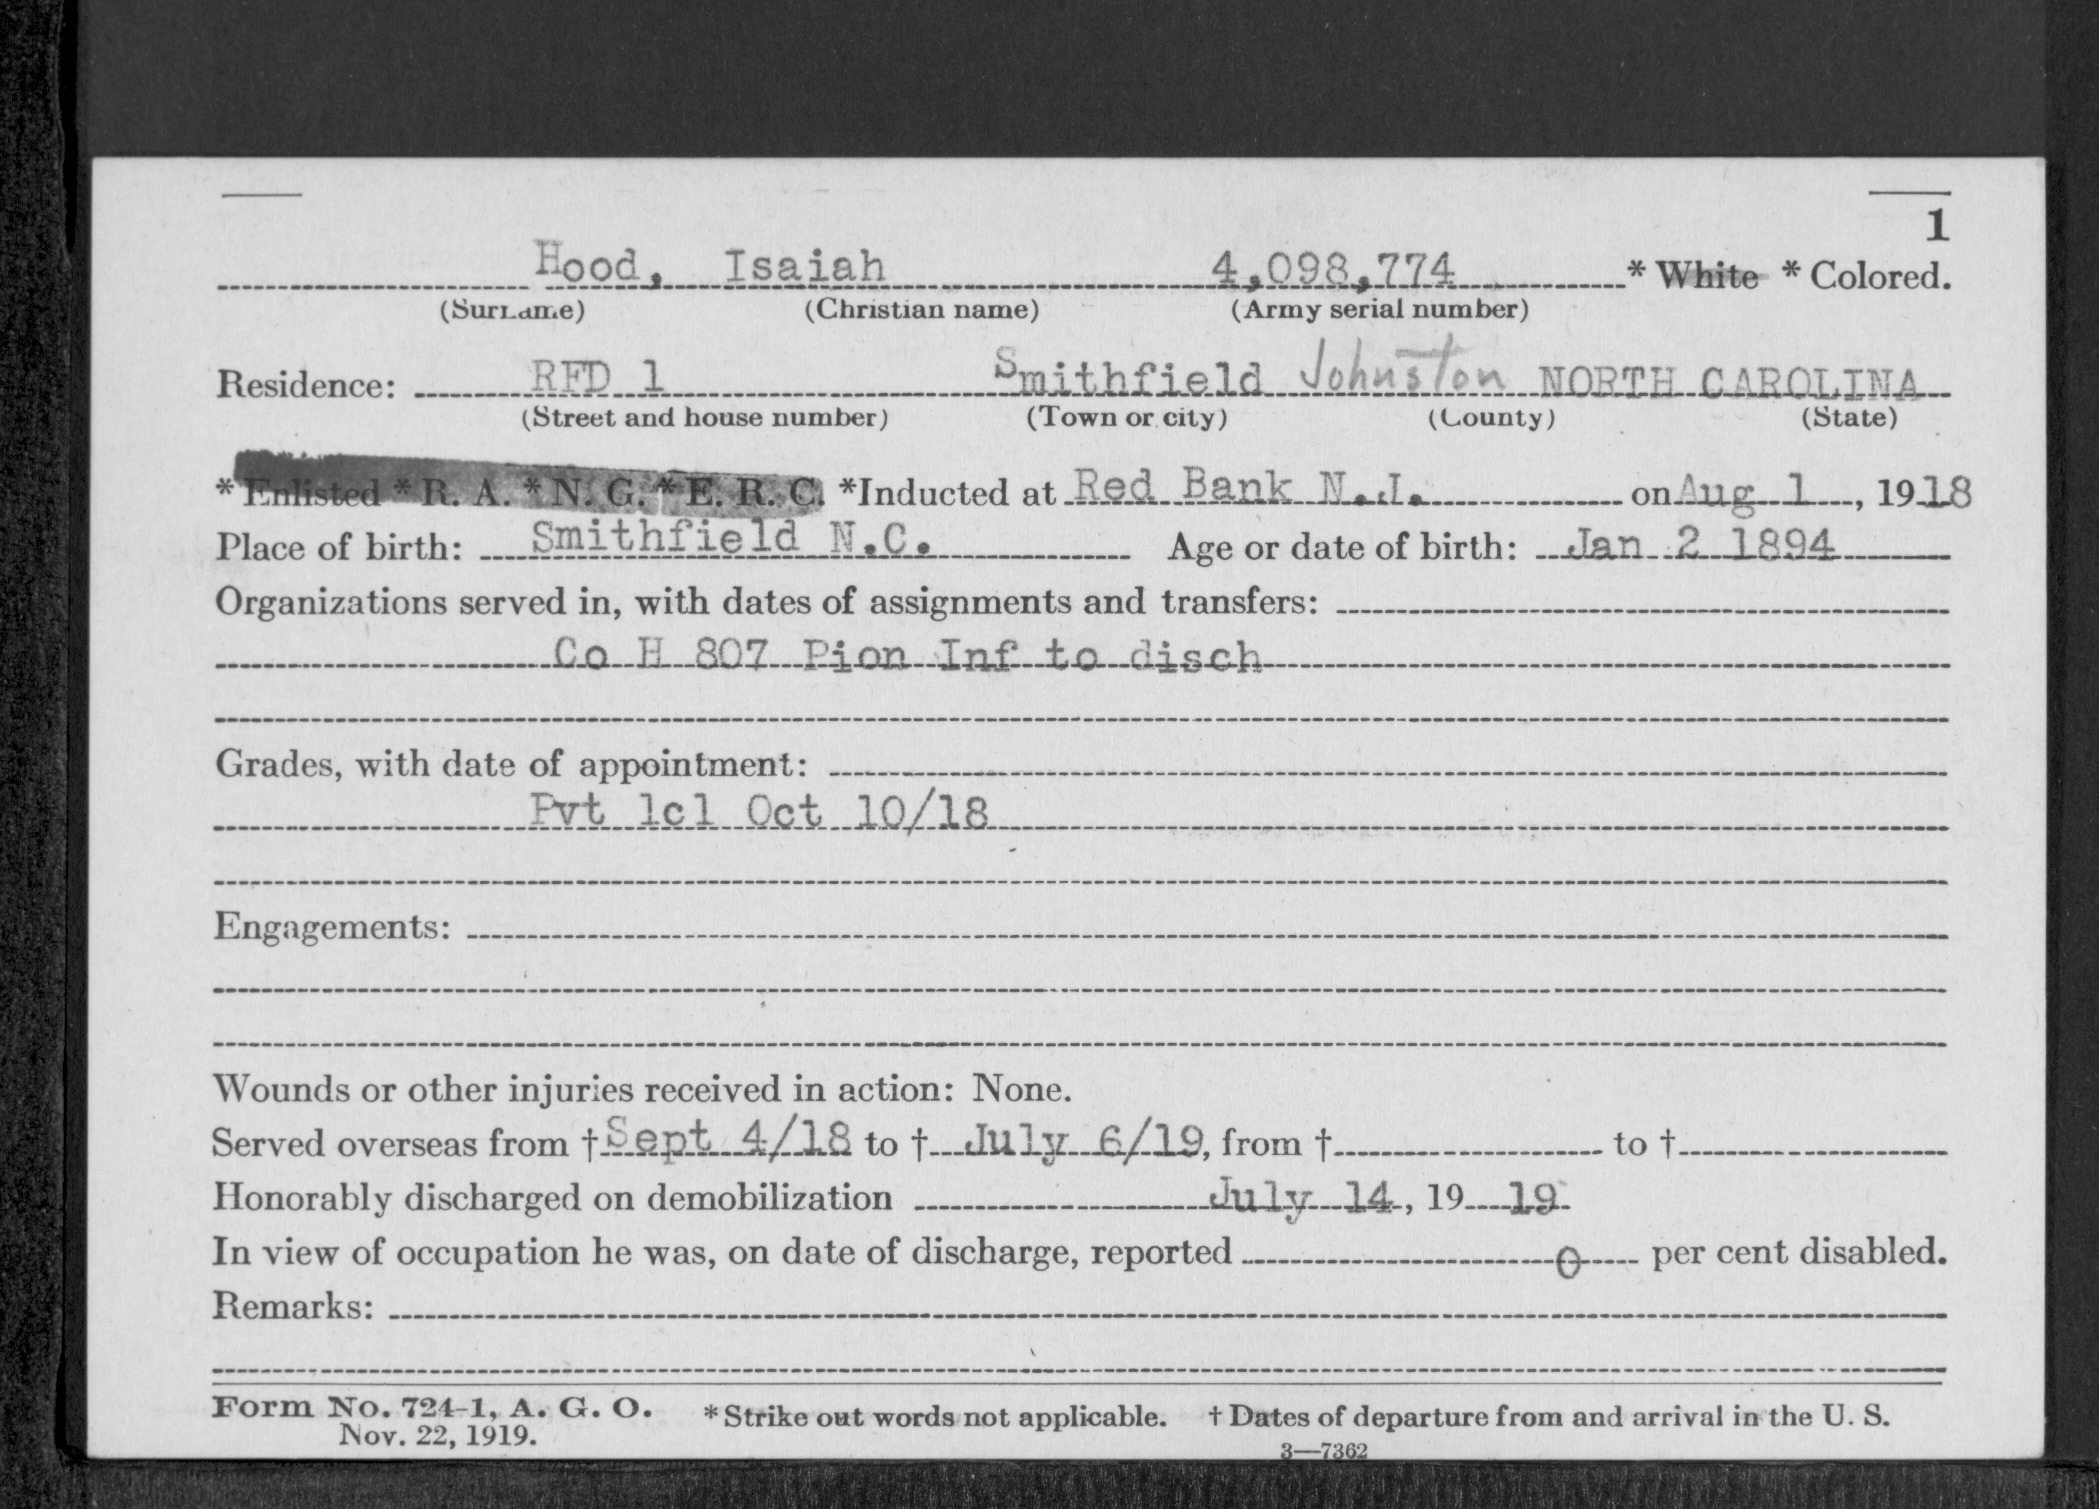 1
Hood, Isaiah 4,098,774 * White * Colored.
(Surname) (Christian name) (Army serial number)
Residence: RFD 1 Smithfield Johnston NORTH CAROLINA
(Street and house number) (Town or city) (County) (State)
* Enlisted * R. A. * N. G. * E. R. C. *Inducted at Red Bank N.J. on Aug 1, 1918
Place of birth: Smithfield N.C. Age or date of birth: Jan 2 1894
Organizations served in, with dates of assignments and transfers:
Co H 807 Pion Inf to disch
Grades, with date of appointment:
Pvt 1cl Oct 10/18
Engagements:
Wounds or other injuries received in action: None.
Served overseas from † Sept 4/18 to † July 6/19, from † to †
Honorably discharged on demobilization July 14, 19 19
In view of occupation he was, on date of discharge, reported 0 per cent disabled.
Remarks:
Form No. 724-1, A. G. O. * Strike out words not applicable. † Dates of departure from and arrival in the U. S.
Nov. 22, 1919.
3—7362